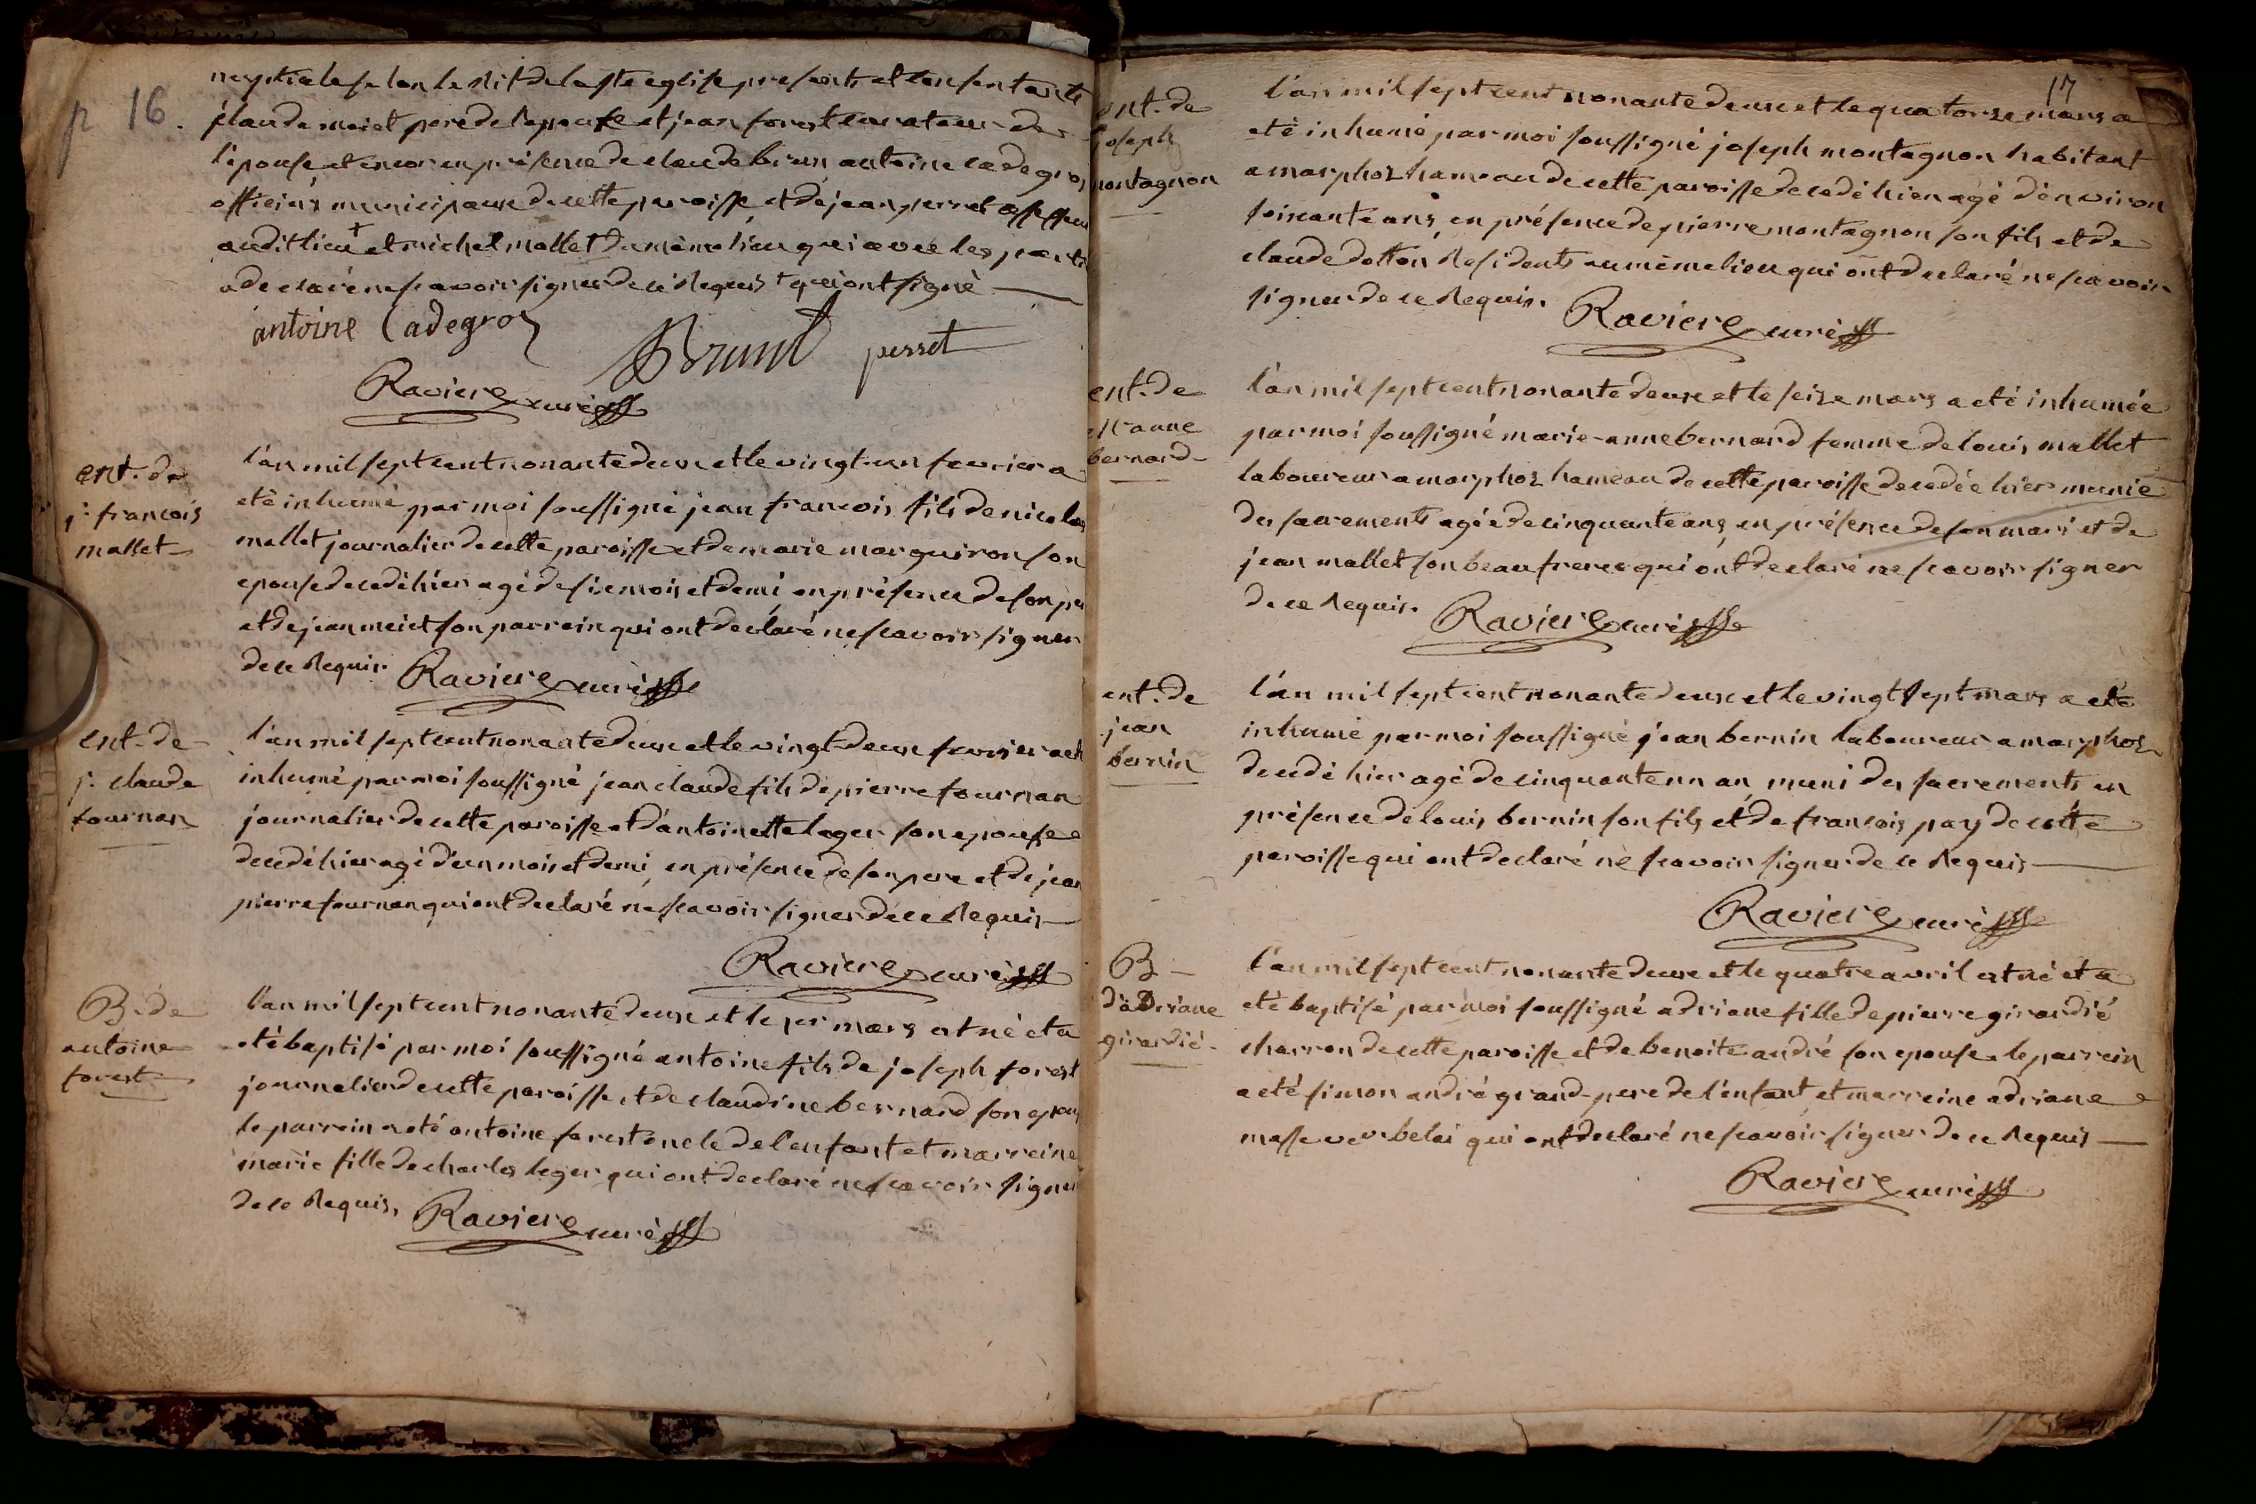 p 16.
nuptiale selon le rit de la ste eglise presents et consentants
claude moiet pere de l'epouse et jean forest curateur de
l'epouse et encor en présence de claude brun, antoine cadegros
officiers municipaux de cette paroisse, et de jean perret assesseur
audit lieu + et michel mallet du même lieu qui avec les parti
a declaré ne scavoir signer de ce requis + qui ont signé
antoine Cadegros
Brunt perret
Raviere curé
ent. de
j. francois
mallet
l'an mil sept cent nonante deux et le vingt-un fevrier a
eté inhumé par moi soussigné jean francois fils de nicolas
mallet journalier de cette paroisse et de marie marguiron son
epouse decedé hier agé de six mois et demi en présence de son pe
et de jean meict son parrein qui ont declaré ne scavoir signer
de ce requis. Raviere curé
ent. de
j. claude
fournan
l'an mil sept cent nonante deux et le vingt-deux fevrier a eté
inhumé par moi soussigné jean claude fils de pierre fournan
journalier de cette paroisse et d'antoinette leger son epouse
decedé hier agé d'un mois et demi, en présence de son pere et de jean
pierre fournan qui ont declaré ne scavoir signer de ce requis
Raviere curé
B. de
antoine
forest
l'an mil sept cent nonante deux et le per mars est né et a
eté baptisé par moi soussigné antoine fils de joseph forest
journalier de cette paroisse et de claudine bernard son epou
le parrein a eté antoine forest oncle de l'enfant et marreine
marie fille de charles leger qui ont declaré ne scavoir signer
de ce requis. Raviere curé
17
ent. de
joseph
montagnon
l'an mil sept cent nonante deux et le quatorze mars a
eté inhumé par moi soussigné joseph montagnon habitant
a marphoz hameau de cette paroisse decedé hier agé d'environ
soixante ans, en présence de pierre montagnon son fils et de
claude dotton residents au même lieu qui ont declaré ne scavoir
signer de ce requis.
Raviere curé
ent. de
M. anne
bernard
l'an mil sept cent nonante deux et le seize mars a eté inhumée
par moi soussigné marie-anne bernard femme de louis mallet
laboureur a marphoz hameau de cette paroisse decedée hier munie
des sacrements agée de cinquante ans, en présence de son mari et de
jean mallet son beau frere qui ont declaré ne scavoir signer
de ce requis. Raviere curé
ent. de
jean
bernin
l'an mil sept cent nonante deux et le vingt sept mars a eté
inhumé par moi soussigné jean bernin laboureur a marphoz
decedé hier agé de cinquante un an, muni des sacrements en
présence de louis bernin son fils et de francois pay de cette
paroisse qui ont declaré ne scavoir signer de ce requis
Raviere curé
B
d'adriane
girardié
l'an mil sept cent nonante deux et le quatre avril est né et a
eté baptisé par moi soussigné adriane fille de pierre girardié
charron de cette paroisse et de benoite andré son epouse le parrein
a eté simon andré grand-pere de l'enfant, et marreine adriane
masse verbelai qui ont declaré ne scavoir signer de ce requis
Raviere curé